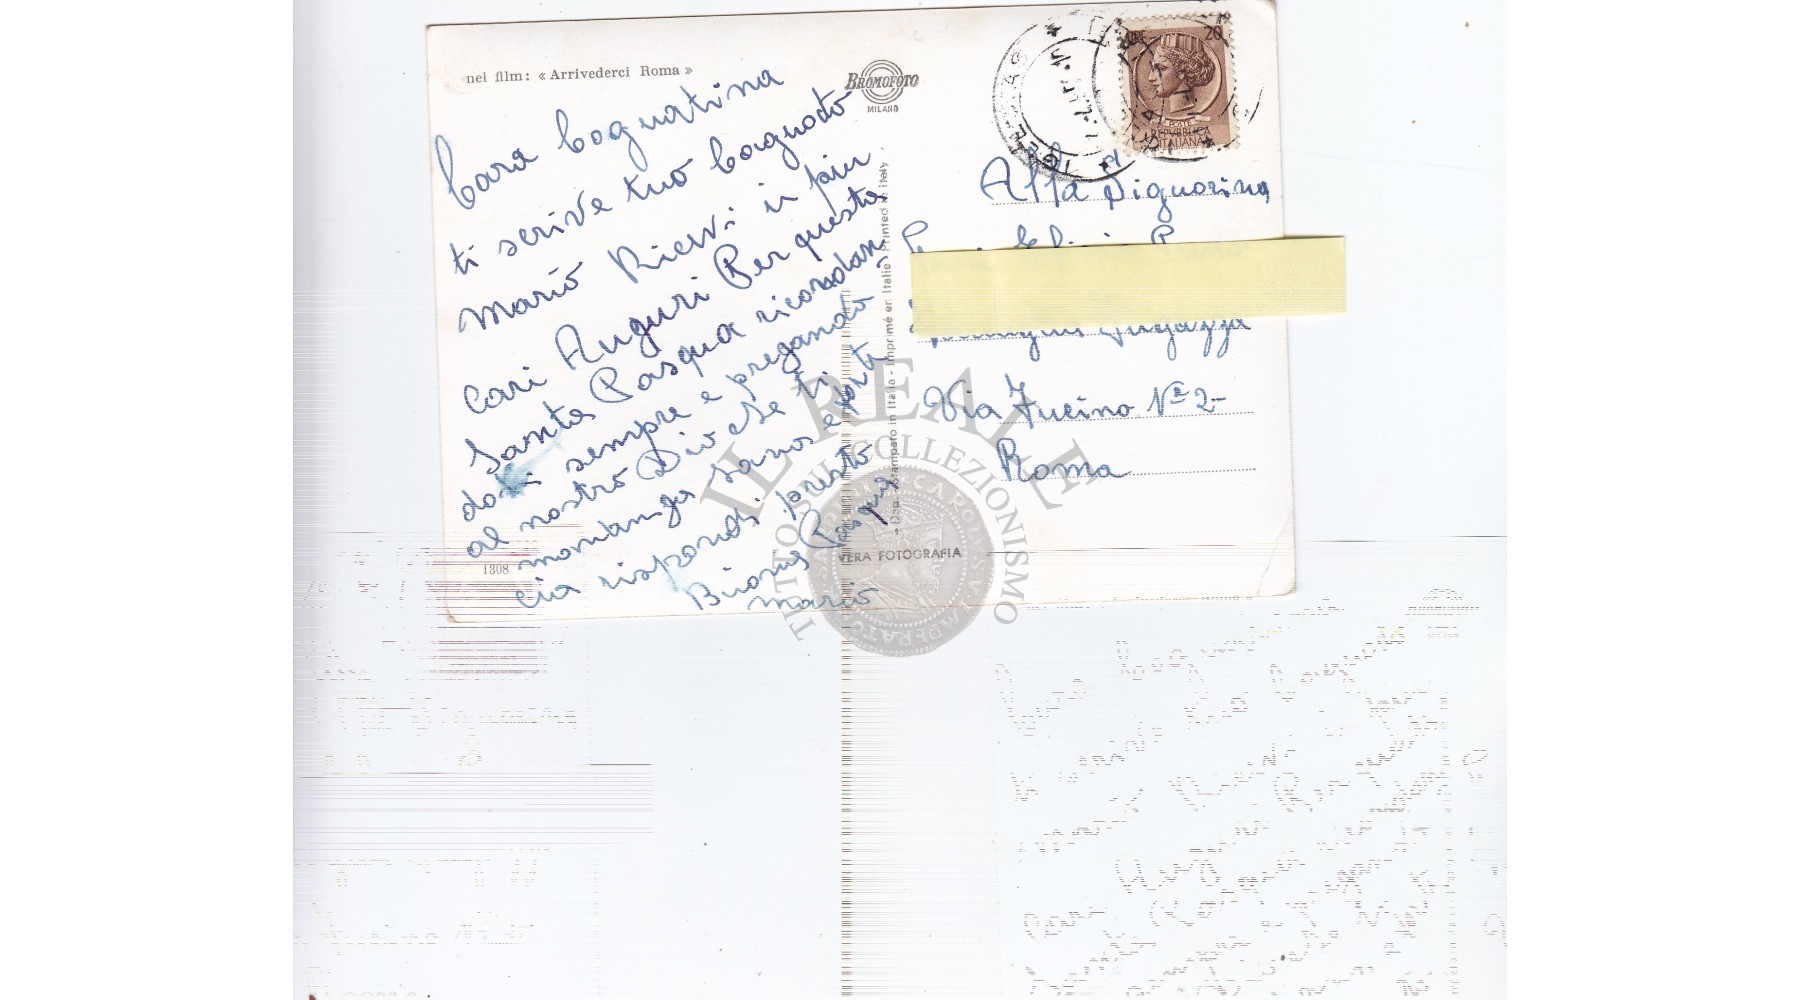 nel film: « Arrivederci Roma »
BROMOFOTO
MILANO
Cara Cognatina
ti scrive tuo Cognato
Mario Ricevi i piu
Cari Auguri Per questa
Santa Pasqua ricordan
doti sempre e pregando
al nostro Dio che ti
mantenga sano e forte
cia rispondi presto
Buona Pasqua
Mario
1308
Dep. Stampato in Italia - Imprimé en Italie - Printed in Italy
VERA FOTOGRAFIA
LIRE 20
POSTE
REPVBBLICA
ITALIANA
Alla Signorina
Via Fucino Nº 2-
Roma
IL REALE
TUTTO SUL COLLEZIONISMO